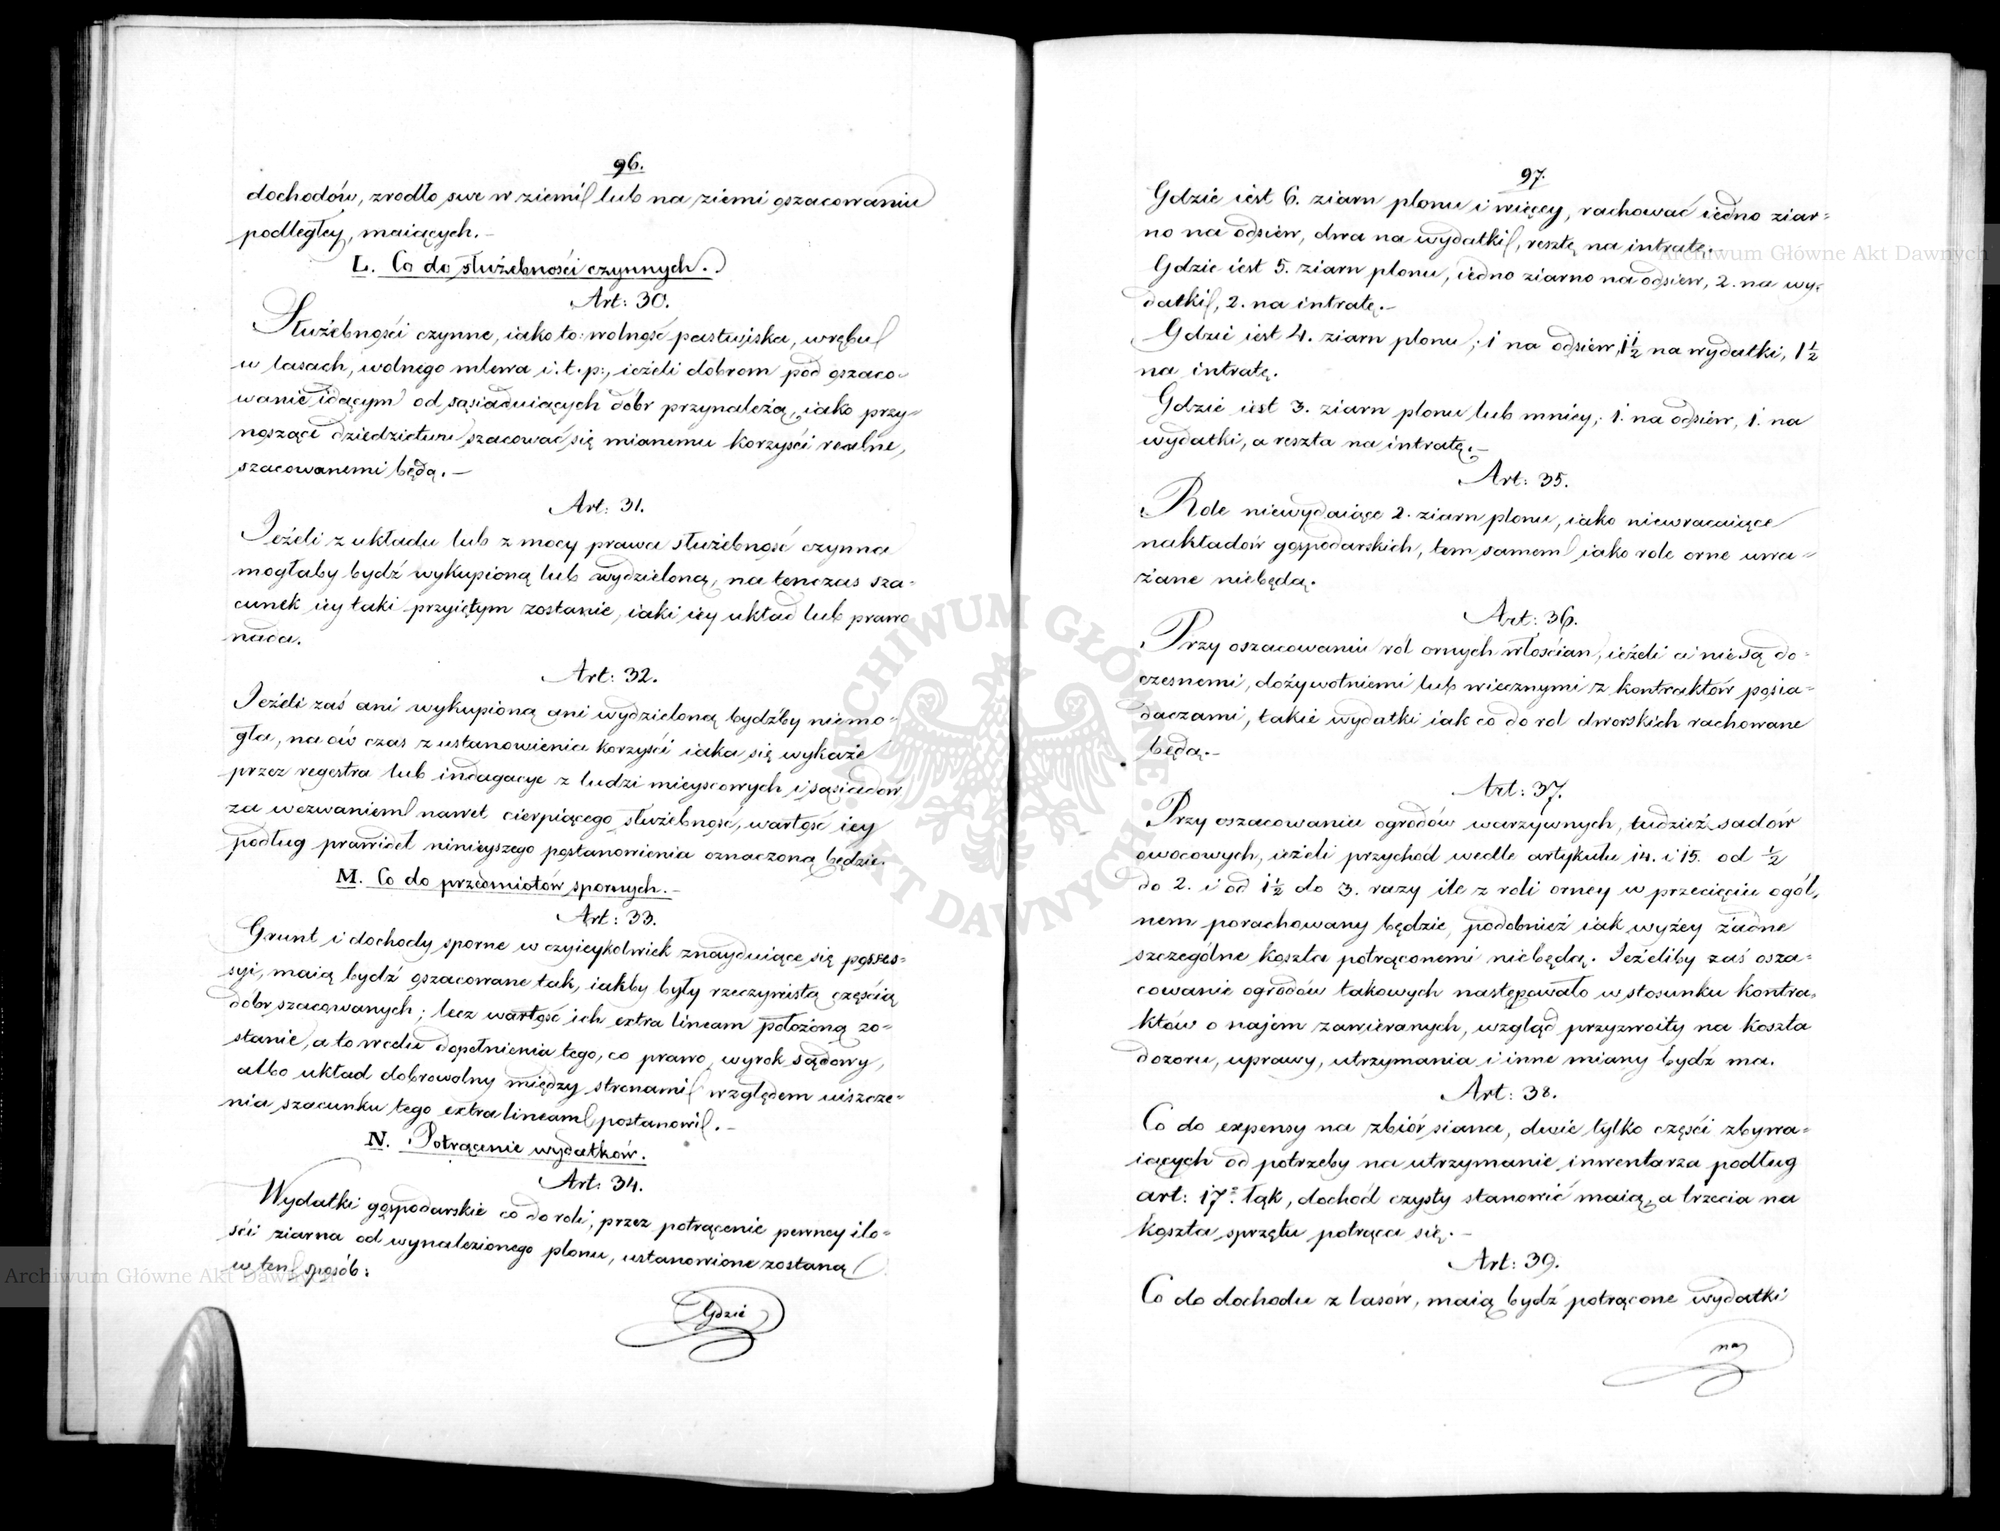 96.
dochodów, zrodło swe w ziemi lub na ziemi oszacowaniu
podległey, maiących. –
L. Co do służebności czynnych.
Art: 30.
Służebności czynne, iako to: wolność pastwiska, wrębu
w lasach, wolnego mlewa i. t. p:, ieżeli dobrom pod oszaco-
wanie idącym od sąsiaduiących dóbr przynależą, iako przy-
noszące dziedzictwu szacować się mianemu korzyści realne,
szacowanemi będą. –
Art: 31.
Jeżeli z układu lub z mocy prawa służebność czynna
mogłaby bydź wykupioną lub wydzieloną, na tenczas sza-
cunek iey taki przyiętym zostanie, iaki iey układ lub prawo
nada.
Art: 32.
Jeżeli zaś ani wykupioną ani wydzieloną bydźby niemo-
gła, na ów czas z ustanowienia korzyści iaka się wykaże
przez regestra lub indagacye z ludzi mieyscowych i sąsiadów
za wezwaniem nawet cierpiącego służebność, wartość iey
podług prawideł ninieyszego postanowienia oznaczoną będzie.
M. Co do przedmiotów spornych. –
Art: 33.
Grunt i dochody sporne w czyieykolwiek znayduiące się posses-
syi, maią bydź oszacowane tak, iakby były rzeczywistą częścią
dóbr szacowanych; lecz wartość ich extra lineam położoną zo-
stanie, a to w celu dopełnienia tego, co prawo, wyrok sądowy,
albo układ dobrowolny między stronami względem uiszcze-
nia szacunku tego extra lineam postanowi. –
N. Potrącenie wydatków.
Art: 34.
Wydatki gospodarskie co do roli, przez potrącenie pewney ilo-
ści ziarna od wynalezionego plonu, ustanowione zostaną
w ten sposób:
Gdzie
97.
Gdzie iest 6. ziarn plonu i więcey, rachować iedno ziar-
no na odsiew, dwa na wydatki, resztę na intratę.
Gdzie iest 5. ziarn plonu, iedno ziarno na odsiew, 2. na wy-
datki, 2. na intratę. –
Gdzie iest 4. ziarn plonu; 1 na odsiew, 1½ na wydatki, 1½
na intratę.
Gdzie iest 3. ziarn plonu lub mniey; 1. na odsiew, 1. na
wydatki, a reszta na intratę. –
Art: 35.
Role niewydaiące 2. ziarn plonu, iako niewracaiące
nakładów gospodarskich, tem samem iako role orne uwa-
żane niebędą.
Art: 36.
Przy oszacowaniu ról ornych włościan, ieżeli ci nie są do-
czesnemi, dożywotniemi lub wiecznymi z kontraktów posia-
daczami, takie wydatki iak co do rol dworskich rachowane
będą. –
Art: 37.
Przy oszacowaniu ogrodów warzywnych, tudzież sadów
owocowych, ieżeli przychód wedle artykułu 14. i 15. od ½
do 2. i od 1½ do 3. razy ile z roli orney w przecięciu ogól-
nem porachowany będzie, podobnież iak wyżey żadne
szczególne koszta potrąconemi niebędą. Jeżeliby zaś osza-
cowanie ogrodów takowych następowało w stosunku kontra-
któw o najem zawieranych, wzgląd przyzwoity na koszta
dozoru, uprawy, utrzymania i inne miany bydź ma.
Art: 38.
Co do expensy na zbiór siana, dwie tylko części zbywa-
iących od potrzeby na utrzymanie inwentarza podług
art: 17º. łąk, dochód czysty stanowić maią, a trzecia na
koszta sprzętu potrąca się. –
Art: 39.
Co do dochodu z lasów, maią bydź potrącone wydatki
na
ARCHIWUM GŁÓWNE AKT DAWNYCH
Archiwum Główne Akt Dawnych
Archiwum Główne Akt Dawnych